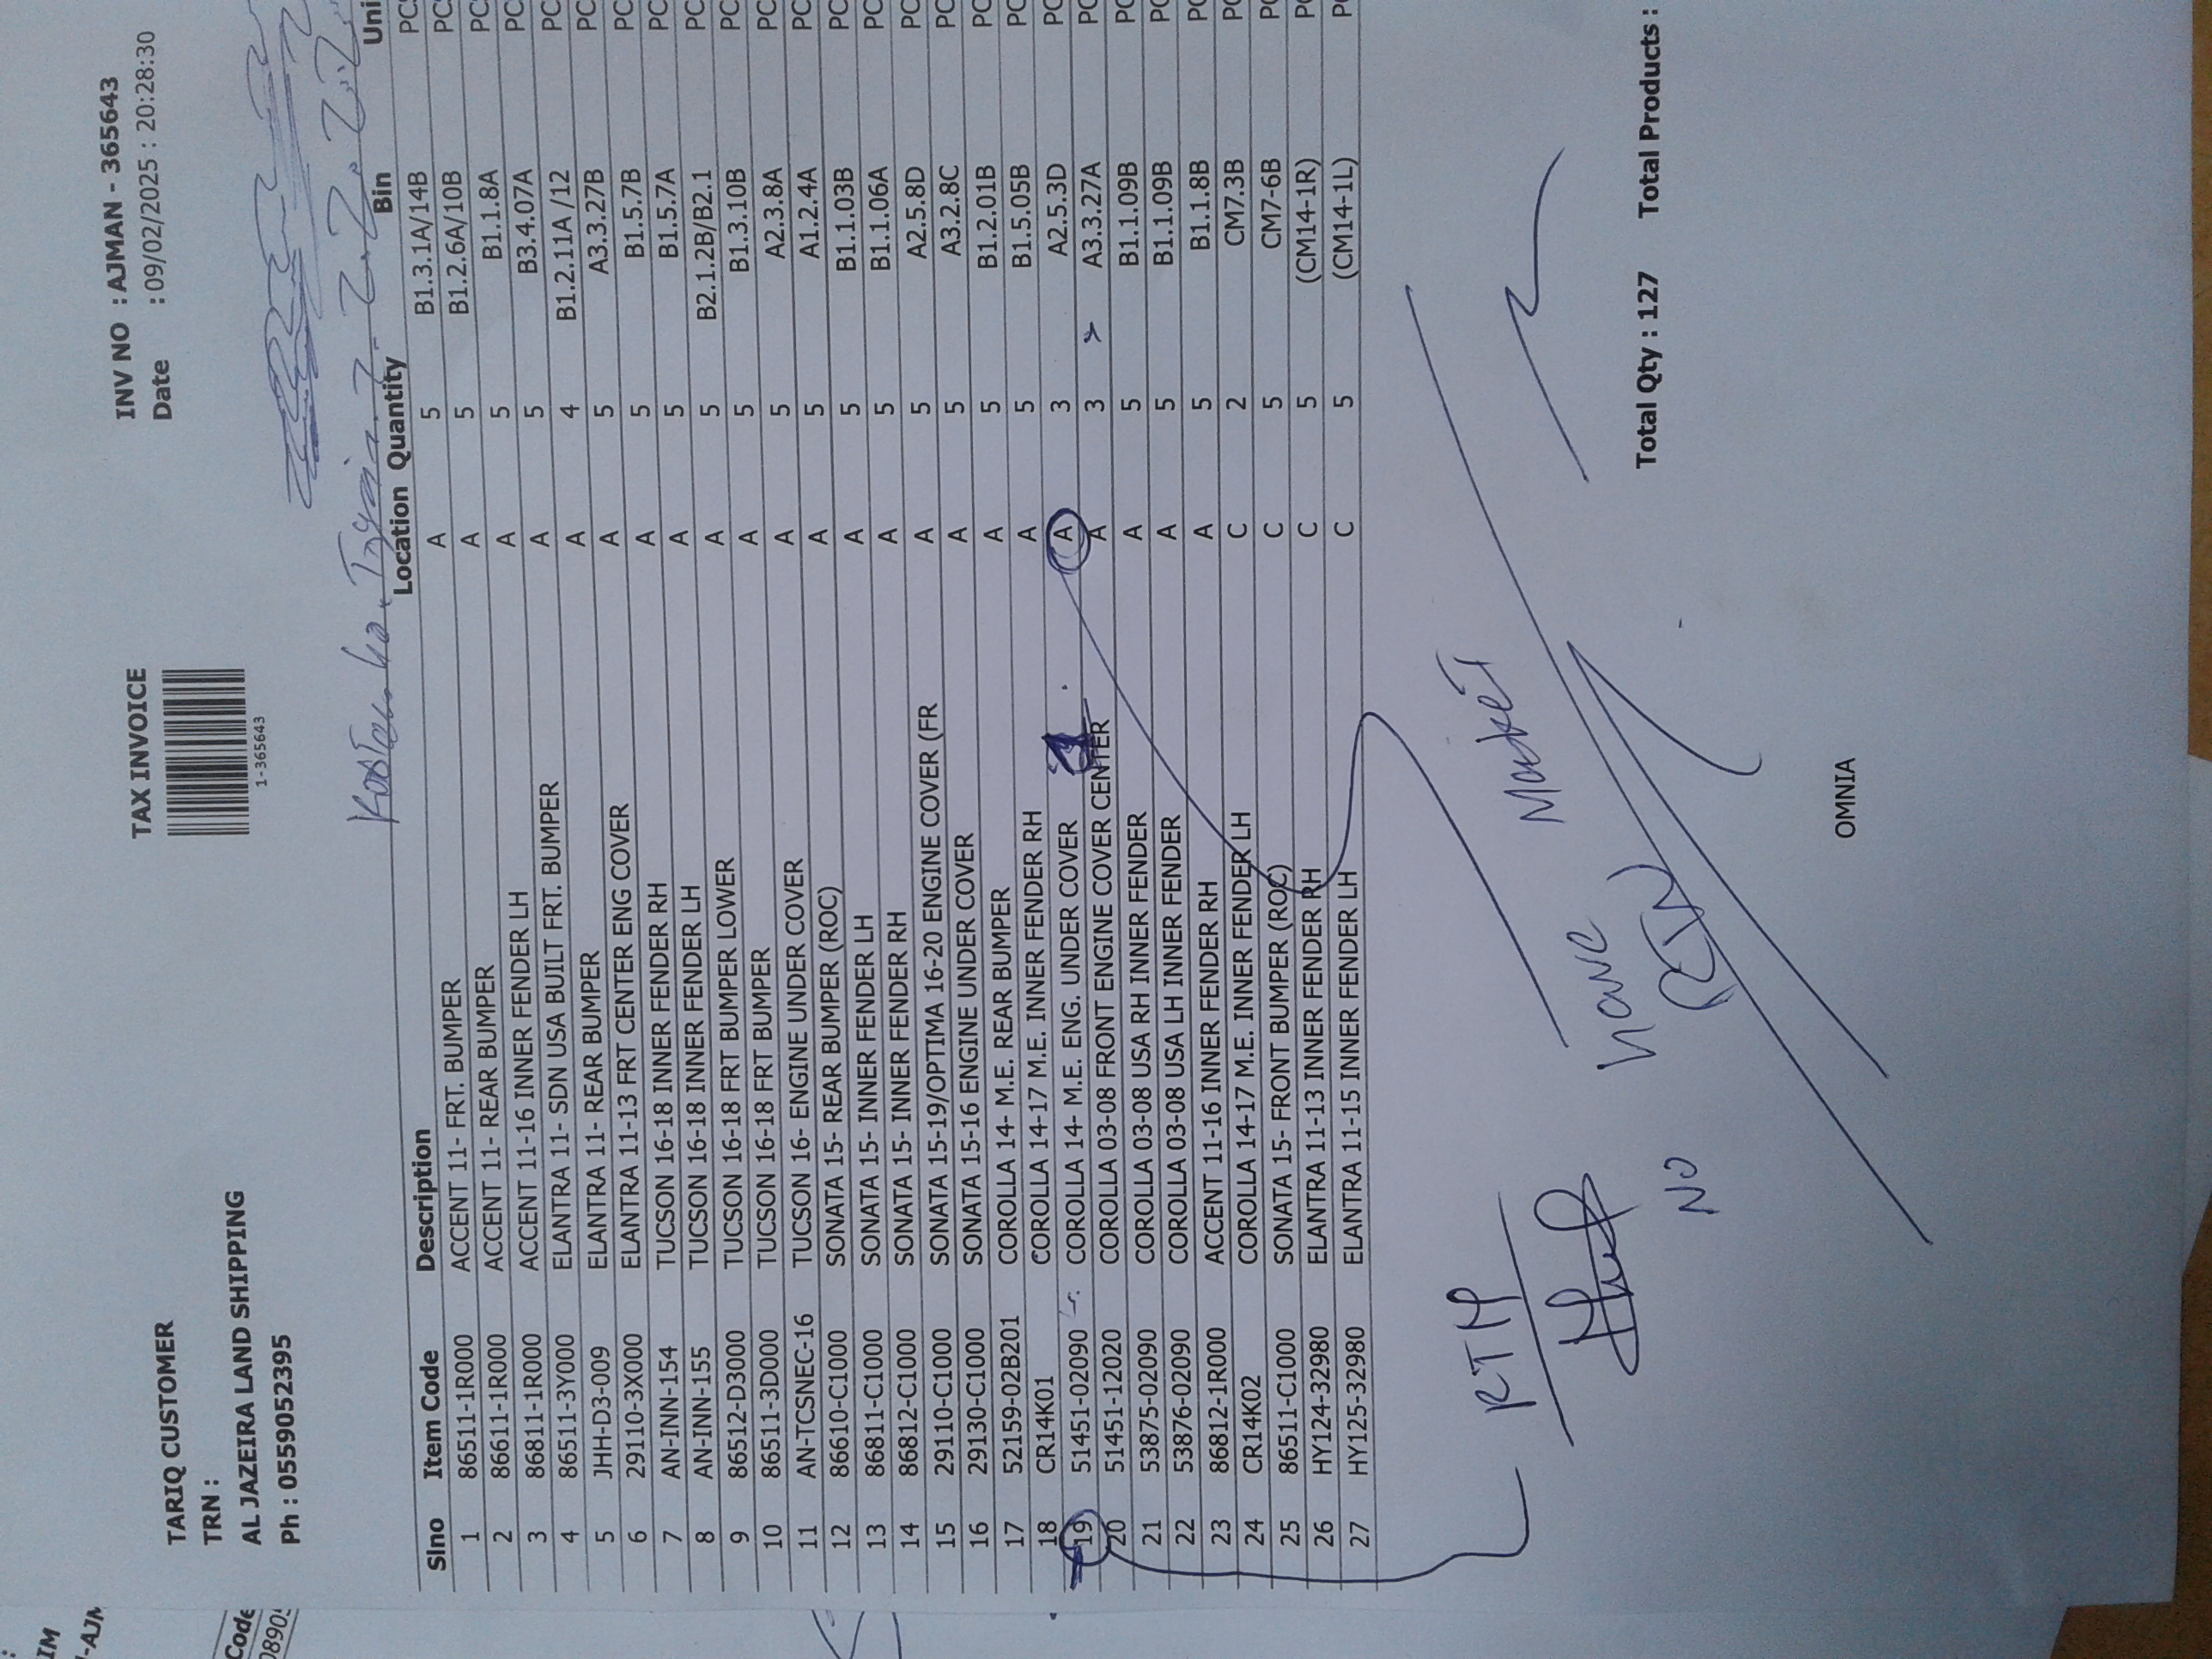 TAX INVOICE
INV NO : AJMAN - 365643
TARIQ CUSTOMER
Date : 09/02/2025 : 20:28:30
TRN :
1-365643
AL JAZEIRA LAND SHIPPING
Ph : 0559052395
Slno Item Code Description Location Quantity Bin Uni
1 86511-1R000 ACCENT 11- FRT. BUMPER A 5 B1.3.1A/14B PC
2 86611-1R000 ACCENT 11- REAR BUMPER A 5 B1.2.6A/10B PC
3 86811-1R000 ACCENT 11-16 INNER FENDER LH A 5 B1.1.8A PC
4 86511-3Y000 ELANTRA 11- SDN USA BUILT FRT. BUMPER A 5 B3.4.07A PC
5 JHH-D3-009 ELANTRA 11- REAR BUMPER A 4 B1.2.11A /12 PC
6 29110-3X000 ELANTRA 11-13 FRT CENTER ENG COVER A 5 A3.3.27B PC
7 AN-INN-154 TUCSON 16-18 INNER FENDER RH A 5 B1.5.7B PC
8 AN-INN-155 TUCSON 16-18 INNER FENDER LH A 5 B1.5.7A PC
9 86512-D3000 TUCSON 16-18 FRT BUMPER LOWER A 5 B2.1.2B/B2.1 PC
10 86511-3D000 TUCSON 16-18 FRT BUMPER A 5 B1.3.10B PC
11 AN-TCSNEC-16 TUCSON 16- ENGINE UNDER COVER A 5 A2.3.8A PC
12 86610-C1000 SONATA 15- REAR BUMPER (ROC) A 5 A1.2.4A PC
13 86811-C1000 SONATA 15- INNER FENDER LH A 5 B1.1.03B PC
14 86812-C1000 SONATA 15- INNER FENDER RH A 5 B1.1.06A PC
15 29110-C1000 SONATA 15-19/OPTIMA 16-20 ENGINE COVER (FR A 5 A2.5.8D PC
16 29130-C1000 SONATA 15-16 ENGINE UNDER COVER A 5 A3.2.8C PC
17 52159-02B201 COROLLA 14- M.E. REAR BUMPER A 5 B1.2.01B PC
18 CR14K01 COROLLA 14-17 M.E. INNER FENDER RH A 5 B1.5.05B PC
19 51451-02090 COROLLA 14- M.E. ENG. UNDER COVER A 3 A2.5.3D PC
20 51451-12020 COROLLA 03-08 FRONT ENGINE COVER CENTER A 3 A3.3.27A PC
21 53875-02090 COROLLA 03-08 USA RH INNER FENDER A 5 B1.1.09B PC
22 53876-02090 COROLLA 03-08 USA LH INNER FENDER A 5 B1.1.09B PC
23 86812-1R000 ACCENT 11-16 INNER FENDER RH A 5 B1.1.8B PC
24 CR14K02 COROLLA 14-17 M.E. INNER FENDER LH C 2 CM7.3B PC
25 86511-C1000 SONATA 15- FRONT BUMPER (ROC) C 5 CM7-6B PC
26 HY124-32980 ELANTRA 11-13 INNER FENDER RH C 5 (CM14-1R) PC
27 HY125-32980 ELANTRA 11-15 INNER FENDER LH C 5 (CM14-1L) PC
RTM
NO have Market
Total Qty : 127 Total Products :
OMNIA